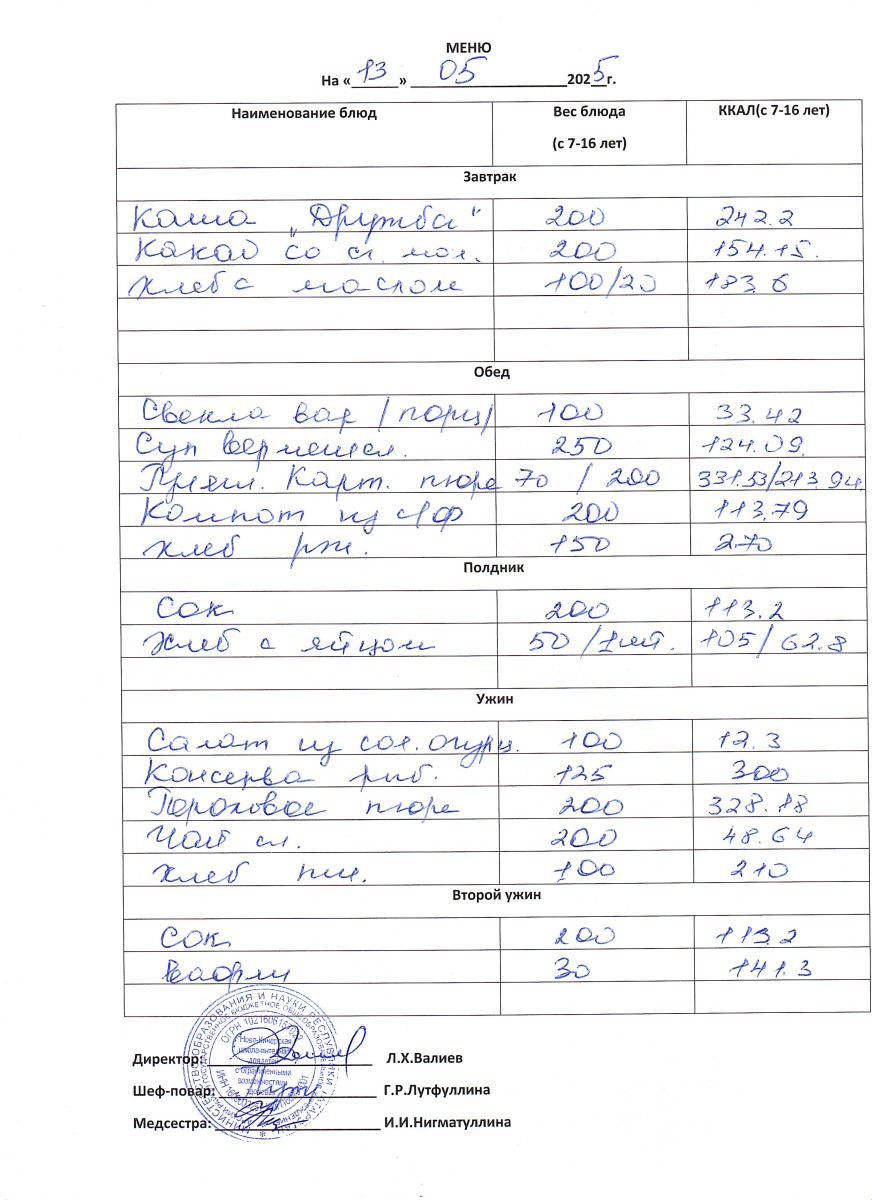 МЕНЮ
На «13» 05 2025г.
Наименование блюд Вес блюда (с 7-16 лет) ККАЛ(с 7-16 лет)
Завтрак
Каша „Дружба" 200 242.2
Какао со сг. мол. 200 154.15.
Хлеб с маслом 100/20 183.6
Обед
Свекла вар /порц/ 100 33.42
Суп вермешел. 250 124.09.
Гуляш. Карт. пюре 70 / 200 331.53/213.94
Компот из с/ф 200 113.79
Хлеб рж. 150 270
Полдник
Сок 200 113.2
Хлеб с яйцом 50 /1шт. 105/ 62.8
Ужин
Салат из сол. огурц. 100 12.3
Консерва рыб. 125 300
Гороховое пюре 200 328.18
Чай сл. 200 48.64
Хлеб пш. 100 210
Второй ужин
Сок 200 113.2
Вафли 30 141.3
Директор: Л.Х.Валиев
Шеф-повар: Г.Р.Лутфуллина
Медсестра: И.И.Нигматуллина